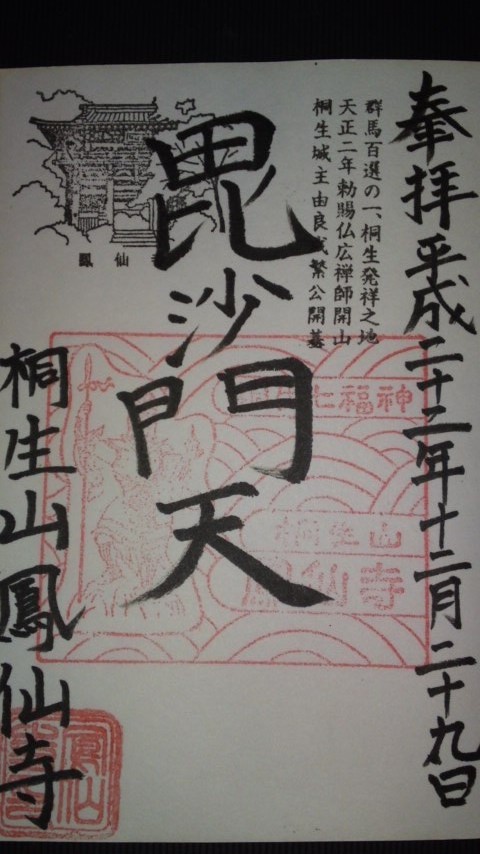 奉拝 平成二十二年十二月二十九日
群馬百選の一、桐生発祥之地
天正二年勅賜仏広禅師開山
桐生城主由良成繁公開基
毘沙門天
鳳仙
七福神
桐生山
鳳仙寺
桐生山鳳仙寺